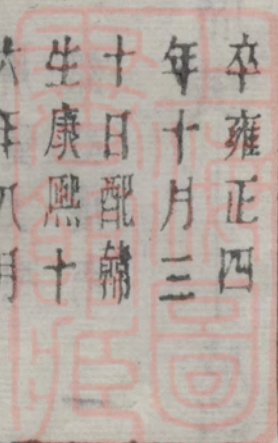 卒雍正四
年十月三
十日配韓
生康熙十
六年八月